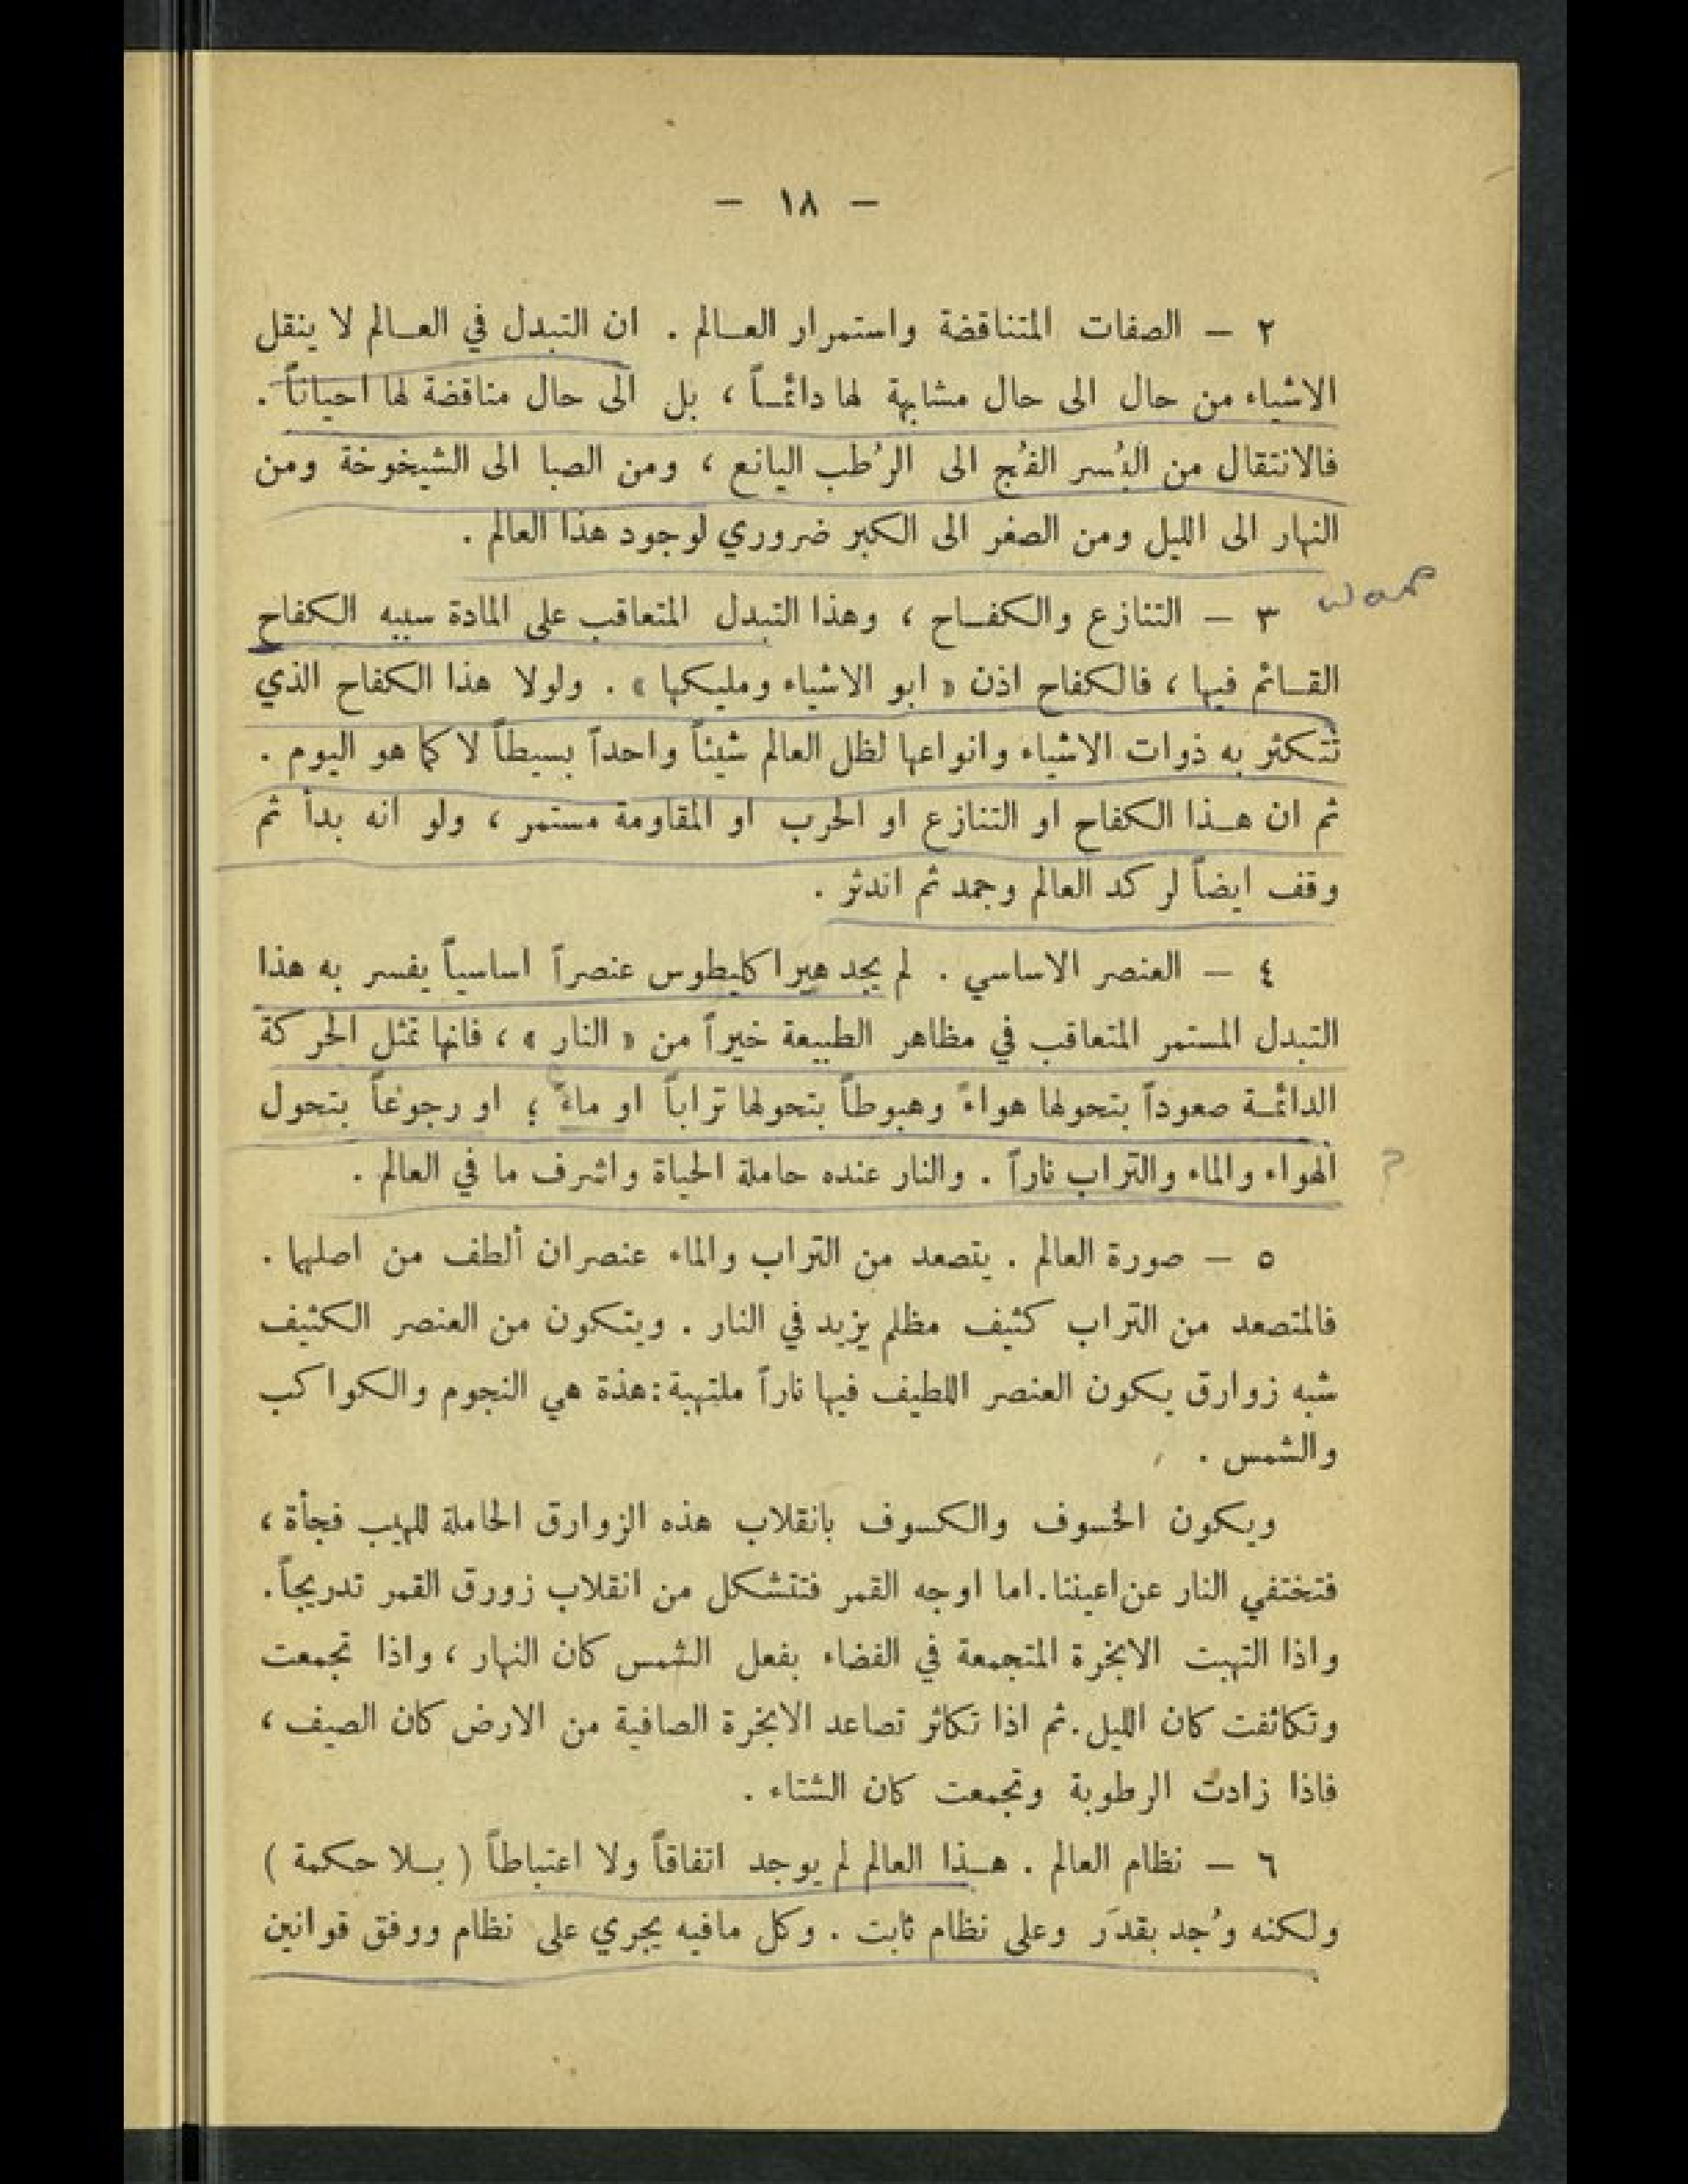 — ١٨ —
٢ — الصفات المتناقضة واستمرار العالم . ان التبدل في العالم لا ينقل
الاشياء من حال الى حال مشابهة لها دائماً ، بل الى حال مناقضة لها احياناً .
فالانتقال من البُسر الفُج الى الرُطب اليانع ، ومن الصبا الى الشيخوخة ومن
النهار الى الليل ومن الصغر الى الكبر ضروري لوجود هذا العالم .
٣ — التنازع والكفاح ، وهذا التبدل المتعاقب على المادة سببه الكفاح
القائم فيها ، فالكفاح اذن « ابو الاشياء ومليكها » . ولولا هذا الكفاح الذي
تتكثر به ذوات الاشياء وانواعها لظل العالم شيئاً واحداً بسيطاً لا كما هو اليوم .
ثم ان هذا الكفاح او التنازع او الحرب او المقاومة مستمر ، ولو انه بدأ ثم
وقف ايضاً لركد العالم وجمد ثم اندثر .
٤ — العنصر الاساسي . لم يجد هيراكليطوس عنصراً اساسياً يفسر به هذا
التبدل المستمر المتعاقب في مظاهر الطبيعة خيراً من « النار » ، فانها تمثل الحركة
الدائمة صعوداً بتحولها هواءً وهبوطاً بتحولها تراباً او ماءً ؛ او رجوعاً بتحول
الهواء والماء والتراب ناراً . والنار عنده حاملة الحياة واشرف ما في العالم .
٥ — صورة العالم . يتصعد من التراب والماء عنصران ألطف من اصليهما .
فالمتصعد من التراب كثيف مظلم يزيد في النار . ويتكون من العنصر الكثيف
شبه زوارق يكون العنصر اللطيف فيها ناراً ملتهبة : هذة هي النجوم والكواكب
والشمس .
ويكون الخسوف والكسوف بانقلاب هذه الزوارق الحاملة للهيب فجأة ،
فتختفي النار عن اعيننا . اما اوجه القمر فتتشكل من انقلاب زورق القمر تدريجاً .
واذا التهبت الابخرة المتجمعة في الفضاء بفعل الشمس كان النهار ، واذا تجمعت
وتكاثفت كان الليل . ثم اذا تكاثر تصاعد الابخرة الصافية من الارض كان الصيف ،
فاذا زادت الرطوبة وتجمعت كان الشتاء .
٦ — نظام العالم . هذا العالم لم يوجد اتفاقاً ولا اعتباطاً ( بلا حكمة )
ولكنه وُجد بقدَر وعلى نظام ثابت . وكل مافيه يجري على نظام ووفق قوانين